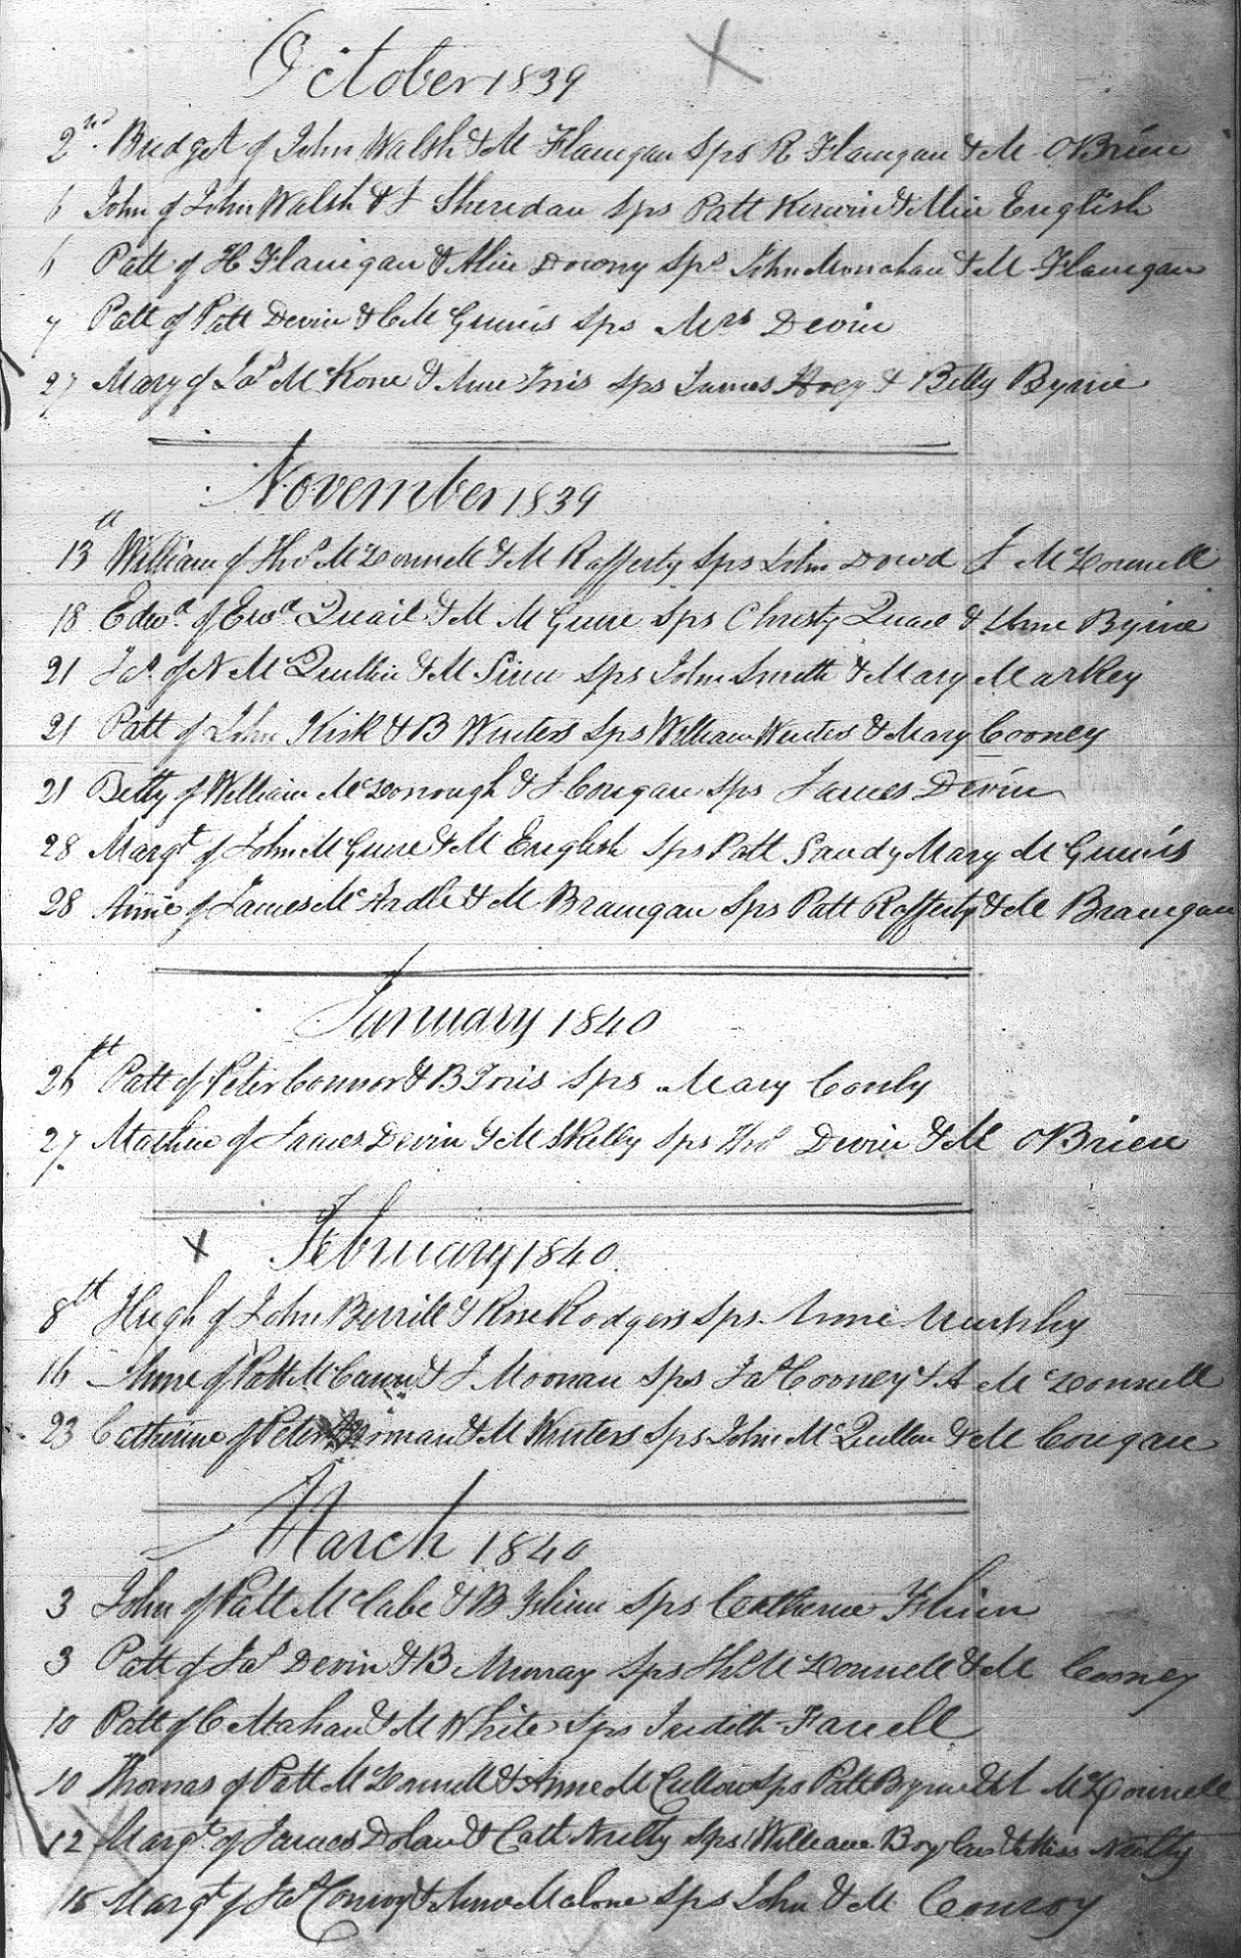 October 1839
2nd. Bridget of John Walsh & M Flanigan Sps R Flanigan & M OBrien
6 John of John Walsh & J Sheridan Sps Patt Kerwin & Alice English
6 Patt of H Flanigan & Alice Downy Sps John Monahan & M Flanigan
7 Patt of Patt Devin & C McGuinis Sps Mrs Devin
27 Mary of Jas McKone & Anne Inis Sps James Hoey & Betty Byrne
November 1839
13th William of Thos McDonnell & M Rafferty Sps John Dowd J McDonnell
18 Edwd. of Ewd Quail & M McGuire Sps Christy Quail & Anne Byrne
21 Jas. of N McQuillin & M Sims Sps John Smith & Mary Markey
21 Patt of John Kirk & B Winters Sps William Winters & Mary Cooney
21 Betty of William McDonough & J Corigan Sps James Devin
28 Margt of John McGuire & M English Sps Patt Sandy Mary McGuinis
28 Anne of James McArdle & M Branigan Sps Patt Rafferty & M Branigan
January 1840
26th Patt of Peter Connor & B Inis Sps Mary Conly
27 Mathew of James Devin & M Skelly Sps Thos Devin & M OBrien
X February 1840
8th Hugh of John Berrill & Rose Rodgers Sps Anne Murphy
16 Anne of Patt McCann & J Moonan Sps Jas Cooney & A McDonnell
23 Catherine of Peter & M Winters Sps John McQuillan & M Corigan
March 1840
3 John of Patt McCabe & B Flinn Sps Catherine Flinn
3 Patt of Jas Devin & B Murray Sps Th McDonnell & M Cooney
10 Patt of C Mahan & M White Sps Judith Farrell
10 Thomas of Patt McDonnell & Anne McCullow Sps Patt Byrne & M McDonnell
12 Margt. of James Dolan & Cath Nulty Sps William Boylan & Miss Nulty
15 Margt of Jas Conroy & Anne Malone Sps John & M Conroy